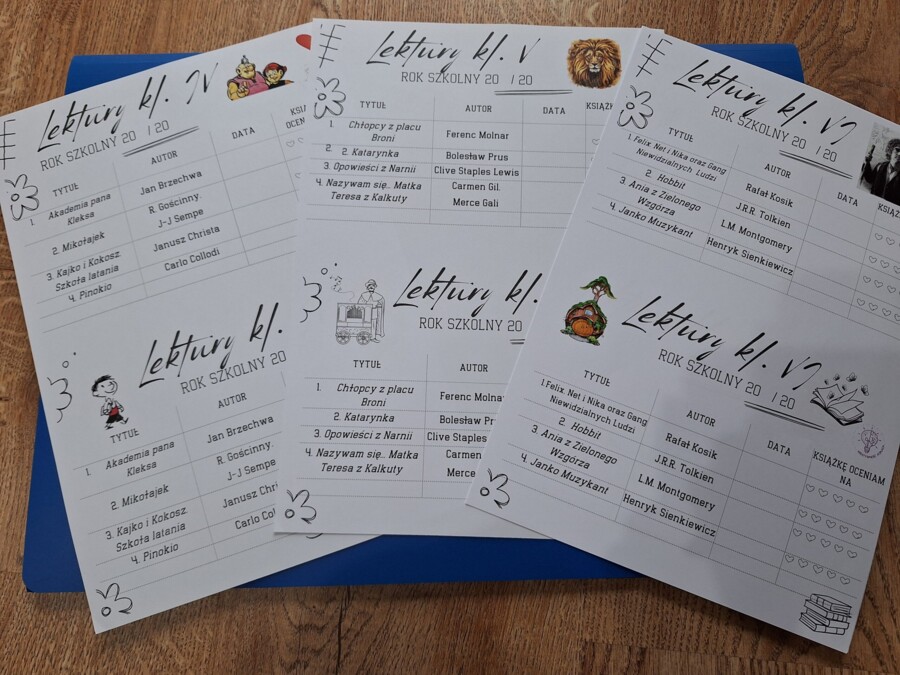 Lektury kl. IV
ROK SZKOLNY 20 / 20
TYTUŁ AUTOR DATA KSIĄ
OCENI
1. Akademia pana Kleksa Jan Brzechwa
2. Mikołajek R. Gościnny. J-J Sempe
3. Kajko i Kokosz. Szkoła latania Janusz Christa
4. Pinokio Carlo Collodi
Lektury kl.
ROK SZKOLNY 20
TYTUŁ AUTOR
1. Akademia pana Kleksa Jan Brzechwa
2. Mikołajek R. Gościnny. J-J Sempe
3. Kajko i Kokosz. Szkoła latania Janusz Chri
4. Pinokio Carlo Col
Lektury kl. V
ROK SZKOLNY 20 / 20
TYTUŁ AUTOR DATA KSIĄŻK
1. Chłopcy z placu Broni Ferenc Molnar
2. 2. Katarynka Bolesław Prus
3. Opowieści z Narnii Clive Staples Lewis
4. Nazywam się.. Matka Teresa z Kalkuty Carmen Gil. Merce Gali
Lektury kl.
ROK SZKOLNY 20
TYTUŁ AUTOR
1. Chłopcy z placu Broni Ferenc Molna
2. Katarynka Bolesław Pr
3. Opowieści z Narnii Clive Staples
4. Nazywam się.. Matka Teresa z Kalkuty Carmen Merce
Lektury kl. VI
ROK SZKOLNY 20 / 20
TYTUŁ AUTOR DATA KSIĄŻK
1. Felix, Net i Nika oraz Gang Niewidzialnych Ludzi Rafał Kosik
2. Hobbit J.R.R. Tolkien
3. Ania z Zielonego Wzgórza L.M. Montgomery
4. Janko Muzykant Henryk Sienkiewicz
Lektury kl. VI
ROK SZKOLNY 20 / 20
TYTUŁ AUTOR DATA KSIĄŻKĘ OCENIAM NA
1. Felix, Net i Nika oraz Gang Niewidzialnych Ludzi Rafał Kosik
2. Hobbit J.R.R. Tolkien
3. Ania z Zielonego Wzgórza L.M. Montgomery
4. Janko Muzykant Henryk Sienkiewicz